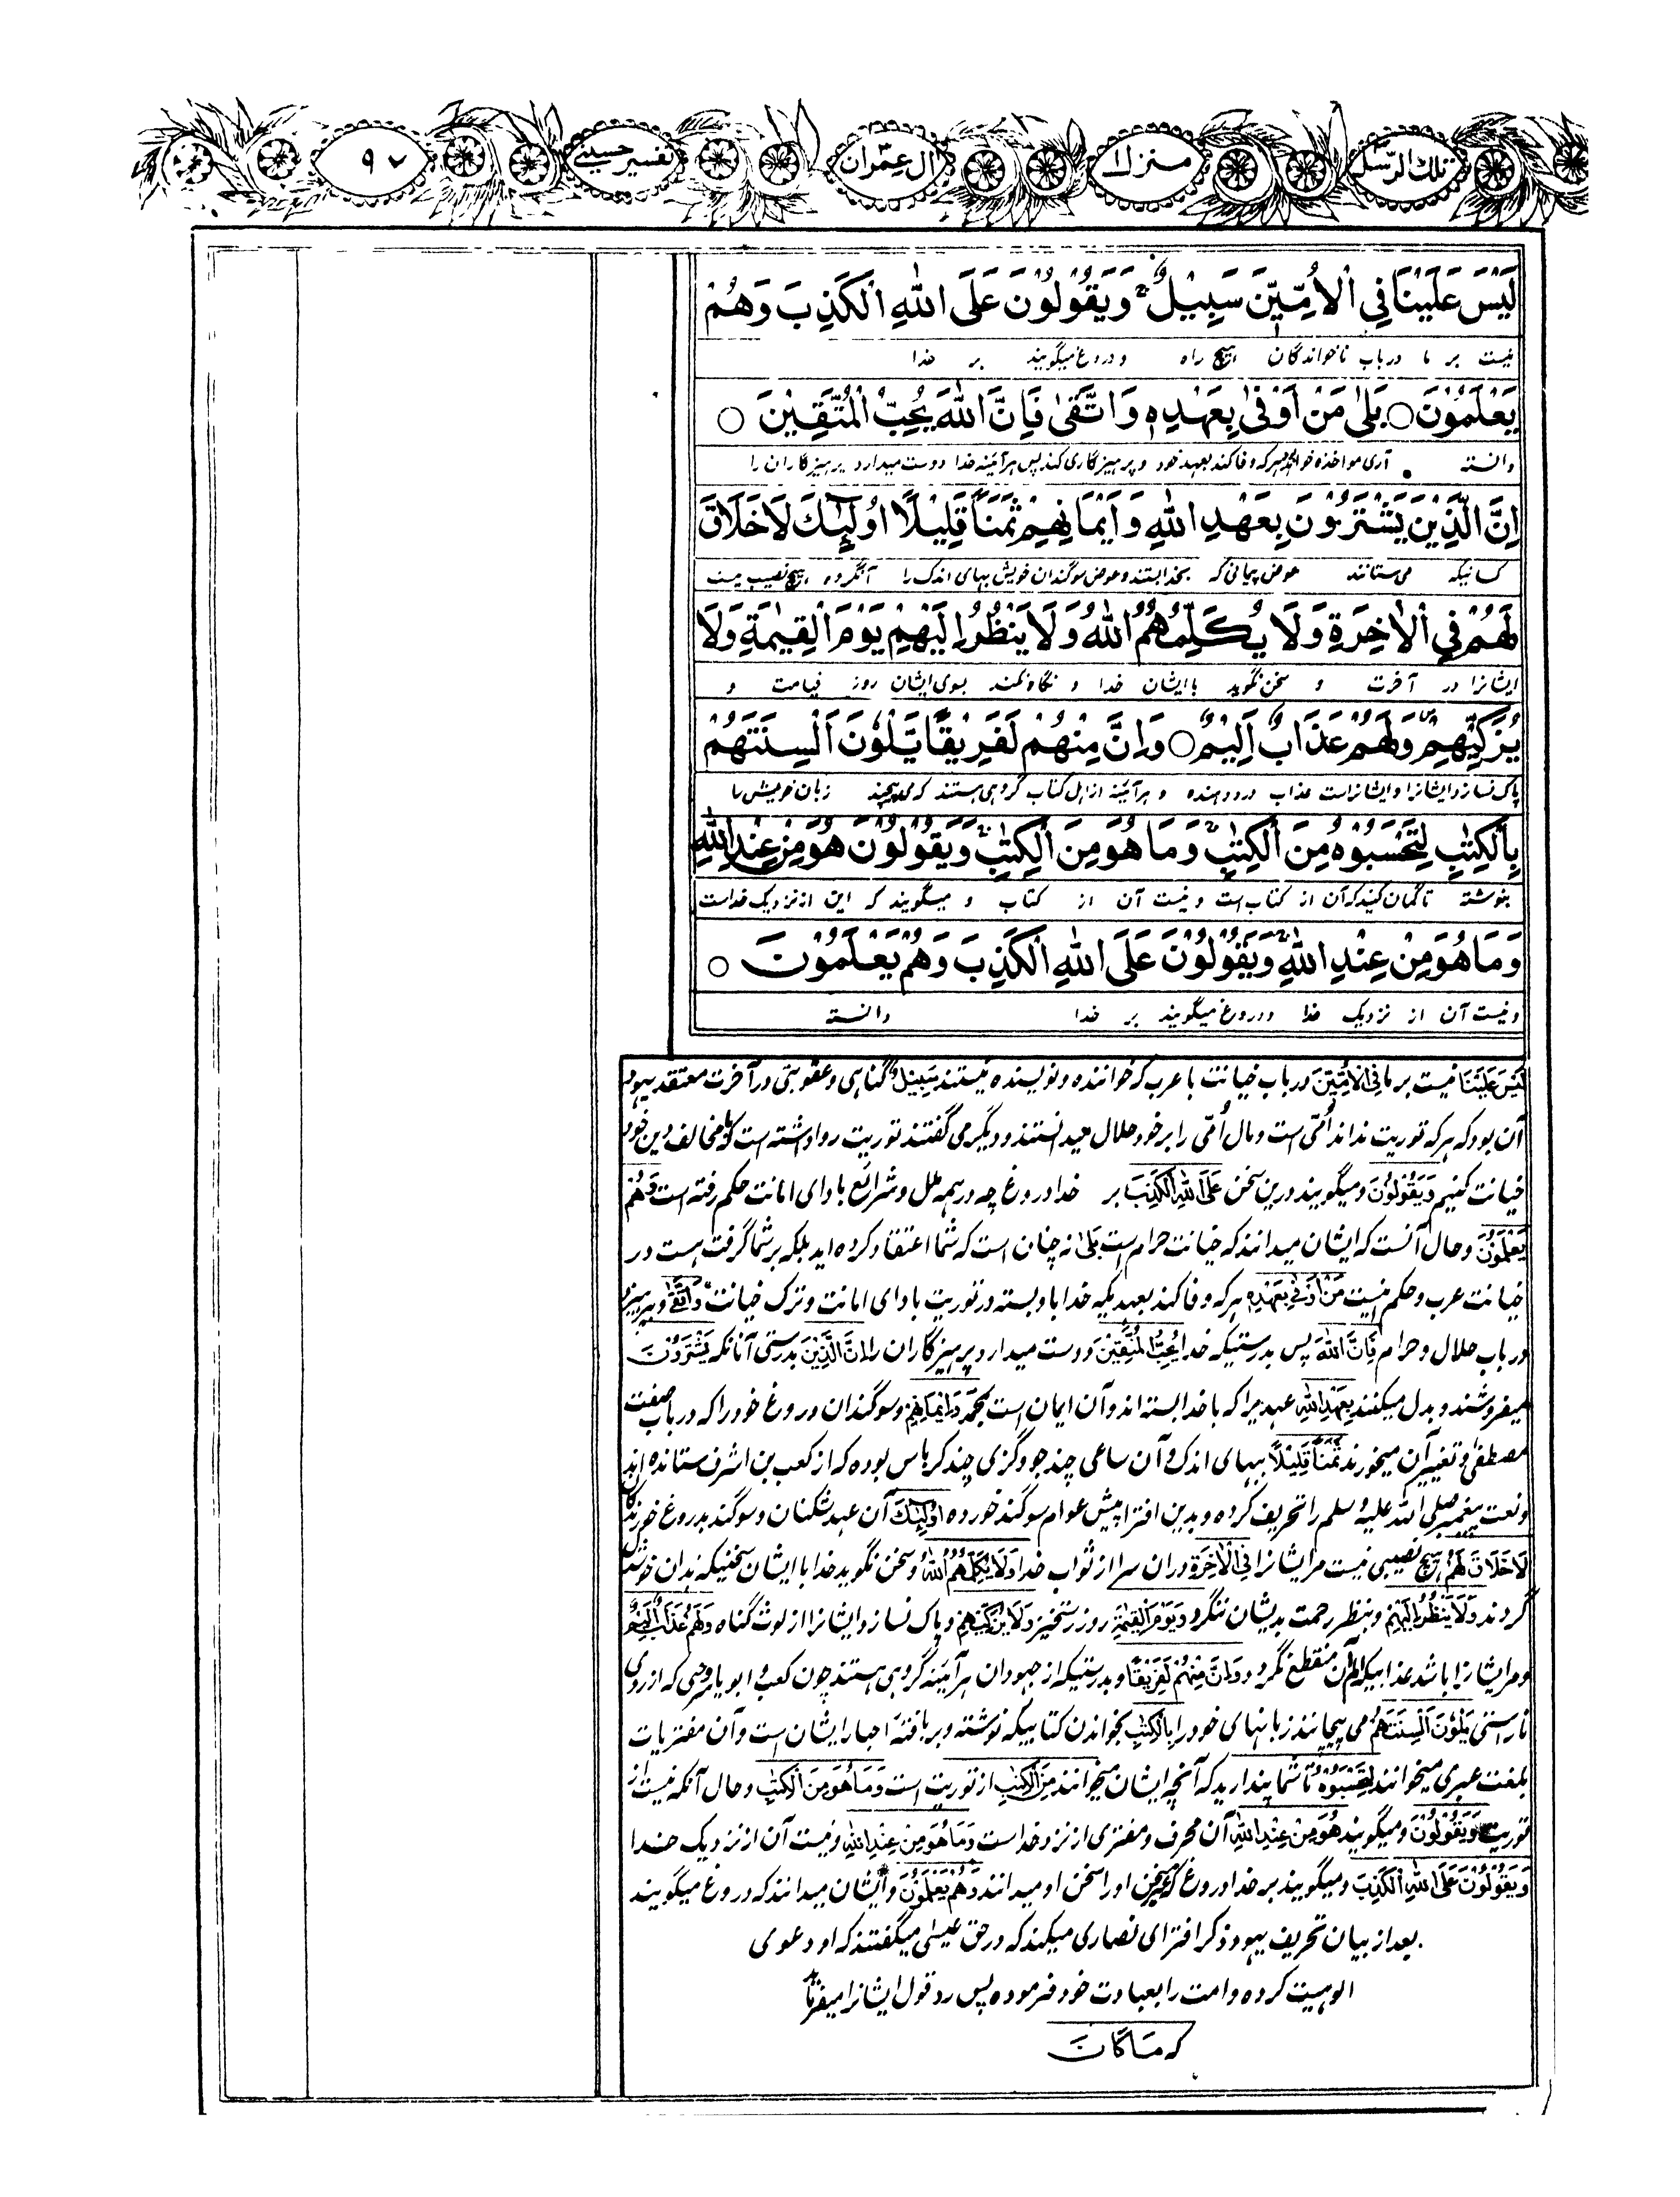 تلك الرسل منزل ۱ ال عمران تفسیر حسینی ۹۷
لَيْسَ عَلَيْنَا فِي الْأُمِّيِّنَ سَبِيْلٌ ۚ وَيَقُوْلُوْنَ عَلَى اللّٰهِ الْكَذِبَ وَهُمْ
نیست بر ما درباب ناخواندگان هیچ راه و دروغ میگویند بر خدا
يَعْلَمُوْنَ ○ بَلٰى مَنْ اَوْفٰى بِعَهْدِهٖ وَاتَّقٰى فَاِنَّ اللّٰهَ يُحِبُّ الْمُتَّقِيْنَ ○
دانسته آری مواخذه خواهد هرکه وفا کند بعهد خود و پرهیزگاری کند پس هرآئینه خدا دوست میدارد پرهیزگاران را
اِنَّ الَّذِيْنَ يَشْتَرُوْنَ بِعَهْدِ اللّٰهِ وَاَيْمَانِهِمْ ثَمَنًا قَلِيْلًا اُولٰٓئِكَ لَا خَلَاقَ
کسانیکه می ستانند عوض پیمانی که بخدا بستند و عوض سوگندان خویش بهای اندک را آنگروه هیچ نصیب نیست
لَهُمْ فِي الْاٰخِرَةِ وَلَا يُكَلِّمُهُمُ اللّٰهُ وَلَا يَنْظُرُ اِلَيْهِمْ يَوْمَ الْقِيٰمَةِ وَلَا
ایشانرا در آخرت و سخن نگوید باایشان خدا و نگاه نکند بسوی ایشان روز قیامت و
يُزَكِّيْهِمْ وَلَهُمْ عَذَابٌ اَلِيْمٌ ○ وَاِنَّ مِنْهُمْ لَفَرِيْقًا يَّلْوٗنَ اَلْسِنَتَهُمْ
پاک نسازد ایشانرا و ایشانراست عذاب درد دهنده و هرآئینه از اهل کتاب گروهی هستند که می پیچند زبان خویش را
بِالْكِتٰبِ لِتَحْسَبُوْهُ مِنَ الْكِتٰبِ وَمَا هُوَ مِنَ الْكِتٰبِ ۚ وَيَقُوْلُوْنَ هُوَ مِنْ عِنْدِ اللّٰهِ
بنوشته تا گمان کنید که آن از کتاب است و نیست آن از کتاب و میگویند که این از نزدیک خداست
وَمَا هُوَ مِنْ عِنْدِ اللّٰهِ ۚ وَيَقُوْلُوْنَ عَلَى اللّٰهِ الْكَذِبَ وَهُمْ يَعْلَمُوْنَ ○
و نیست آن از نزدیک خدا و دروغ میگویند بر خدا دانسته
لَيْسَ عَلَيْنَا نیست بر ما فِي الْأُمِّيِّنَ درباب خیانت با عرب که خواننده و نویسنده نیستند سَبِيْلٌ گناهی و عقوبتی در آخرت معتقد یهود
آن بود که هرکه توریت نداند اُمّی است و مال اُمّی را بر خود حلال میدانستند و دیگر می گفتند توریت روا داشته است که با مخالف دین خود
خیانت کنیم وَيَقُوْلُوْنَ و میگویند درین سخن عَلَى اللّٰهِ الْكَذِبَ بر خدا دروغ چه در همه ملل و شرائع بادای امانت حکم رفته است وَهُمْ
يَعْلَمُوْنَ و حال آنست که ایشان میدانند که خیانت حرام است بَلٰى نه چنان است که شما اعتقاد کرده اید بلکه بر شما گرفت هست در
خیانت عرب و حکم اینست مَنْ اَوْفٰى بِعَهْدِهٖ هرکه وفا کند بعهدیکه خدا با و بسته در توریت بادای امانت و ترک خیانت وَاتَّقٰى و بپرهیزد
درباب حلال و حرام فَاِنَّ اللّٰهَ پس بدرستیکه خدا يُحِبُّ الْمُتَّقِيْنَ دوست میدارد پرهیزگاران را اِنَّ الَّذِيْنَ بدرستی آنانکه يَشْتَرُوْنَ
میفروشند و بدل میکنند بِعَهْدِ اللّٰهِ عهدیرا که با خدا بسته اند و آن ایمان است بمحمد وَاَيْمَانِهِمْ و سوگندان دروغ خود را که درباب صفت
مصطفی و تغییر آن میخورند ثَمَنًا قَلِيْلًا ببهای اندک و آن ساعی چند جو و گزی چند کرباس بوده که از کعب بن اشرف ستانده اند
و نعت پیغمبر صلی الله علیه وسلم را تحریف کرده و بدین افترا پیش عوام سوگند خورده اُولٰٓئِكَ آن عهد شکنان و سوگند بدروغ خورندگان
لَا خَلَاقَ لَهُمْ هیچ نصیبی نیست مر ایشانرا فِي الْاٰخِرَةِ دران سرا از ثواب خدا وَلَا يُكَلِّمُهُمُ اللّٰهُ و سخن نگوید خدا باایشان سخنیکه بدان خوشدل
گردند وَلَا يَنْظُرُ اِلَيْهِمْ و بنظر رحمت بدیشان ننگرد يَوْمَ الْقِيٰمَةِ روز رستخیز وَلَا يُزَكِّيْهِمْ و پاک نسازد ایشانرا از لوث گناه وَلَهُمْ عَذَابٌ اَلِيْمٌ
و مر ایشانرا باشد عذابیکه الم آن منقطع نگردد وَاِنَّ مِنْهُمْ لَفَرِيْقًا و بدرستیکه از جهودان هرآئینه گروهی هستند چون کعب و ابو یاسر و حیی که از روی
ناراستی يَلْوٗنَ اَلْسِنَتَهُمْ می پیچانند زبانهای خود را بِالْكِتٰبِ بخواندن کتابیکه نوشته و بربافتهٔ احبار ایشان است و آن مفتریات
بلغت عبری میخوانند لِتَحْسَبُوْهُ تا شما پندارید که آنچه ایشان میخوانند مِنَ الْكِتٰبِ از توریت است وَمَا هُوَ مِنَ الْكِتٰبِ و حال آنکه نیست از
توریت وَيَقُوْلُوْنَ و میگویند هُوَ مِنْ عِنْدِ اللّٰهِ آن محرف و مفتری از نزد خداست وَمَا هُوَ مِنْ عِنْدِ اللّٰهِ و نیست آن از نزدیک خدا
وَيَقُوْلُوْنَ عَلَى اللّٰهِ الْكَذِبَ و میگویند بر خدا دروغ که غیر سخن او را سخن او میدانند وَهُمْ يَعْلَمُوْنَ و ایشان میدانند که دروغ میگویند
بعد از بیان تحریف یهود ذکر افترای نصاری میکند که در حق عیسٰی میگفتند که او دعوی
الوهیت کرده و امت را بعبادت خود فرموده پس رد قول ایشانرا میفرماید
که مَا كَانَ